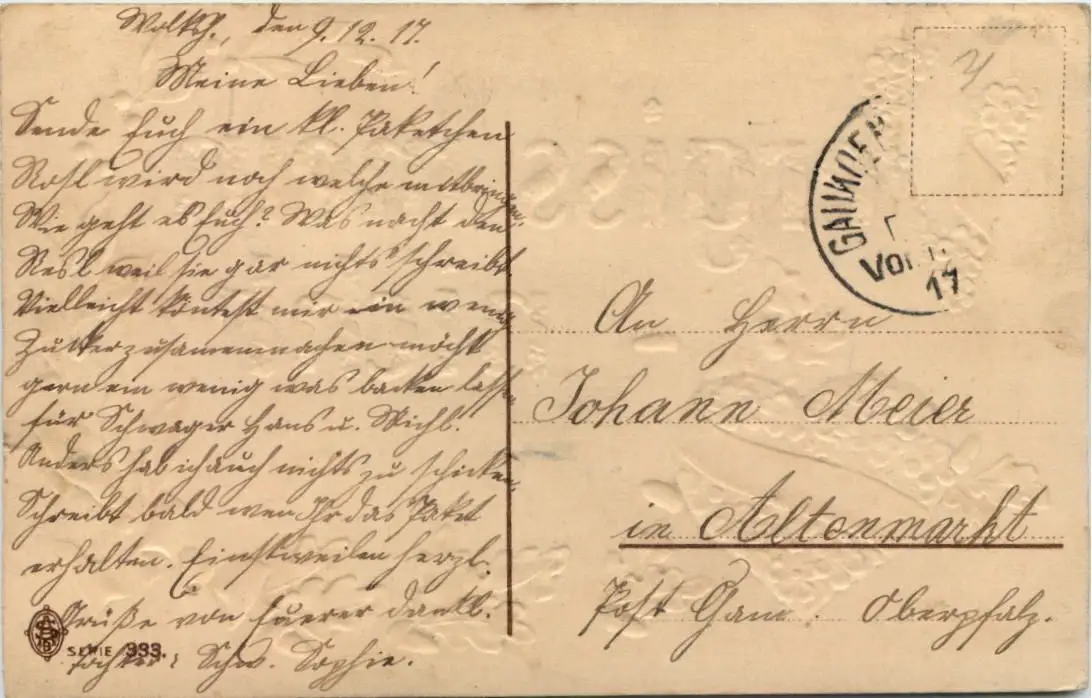 Wolksh., den 9.12.17.
Meine Lieben!
Sende Euch ein kl. Paketchen
Resl wird noch welche mitbringen.
Wie geht es Euch? Was macht den
Resl weil sie gar nichts schreibt.
Vielleicht köntest mir ein wenig
Zucker zusammenmachen möcht
gern ein wenig was backen lassen
für Schwager Hans u. Michl.
Anders hab ich auch nichts zu schicken.
Schreibt bald wen Ihr das Paket
erhalten. Einstweilen herzl.
Grüße von Euerer dankb.
Tochter: Schw. Sophie.
SERIE 333.
An Herrn
Johann Meier
in Altenmarkt
Post Cham. Oberpfalz.
Vor
17